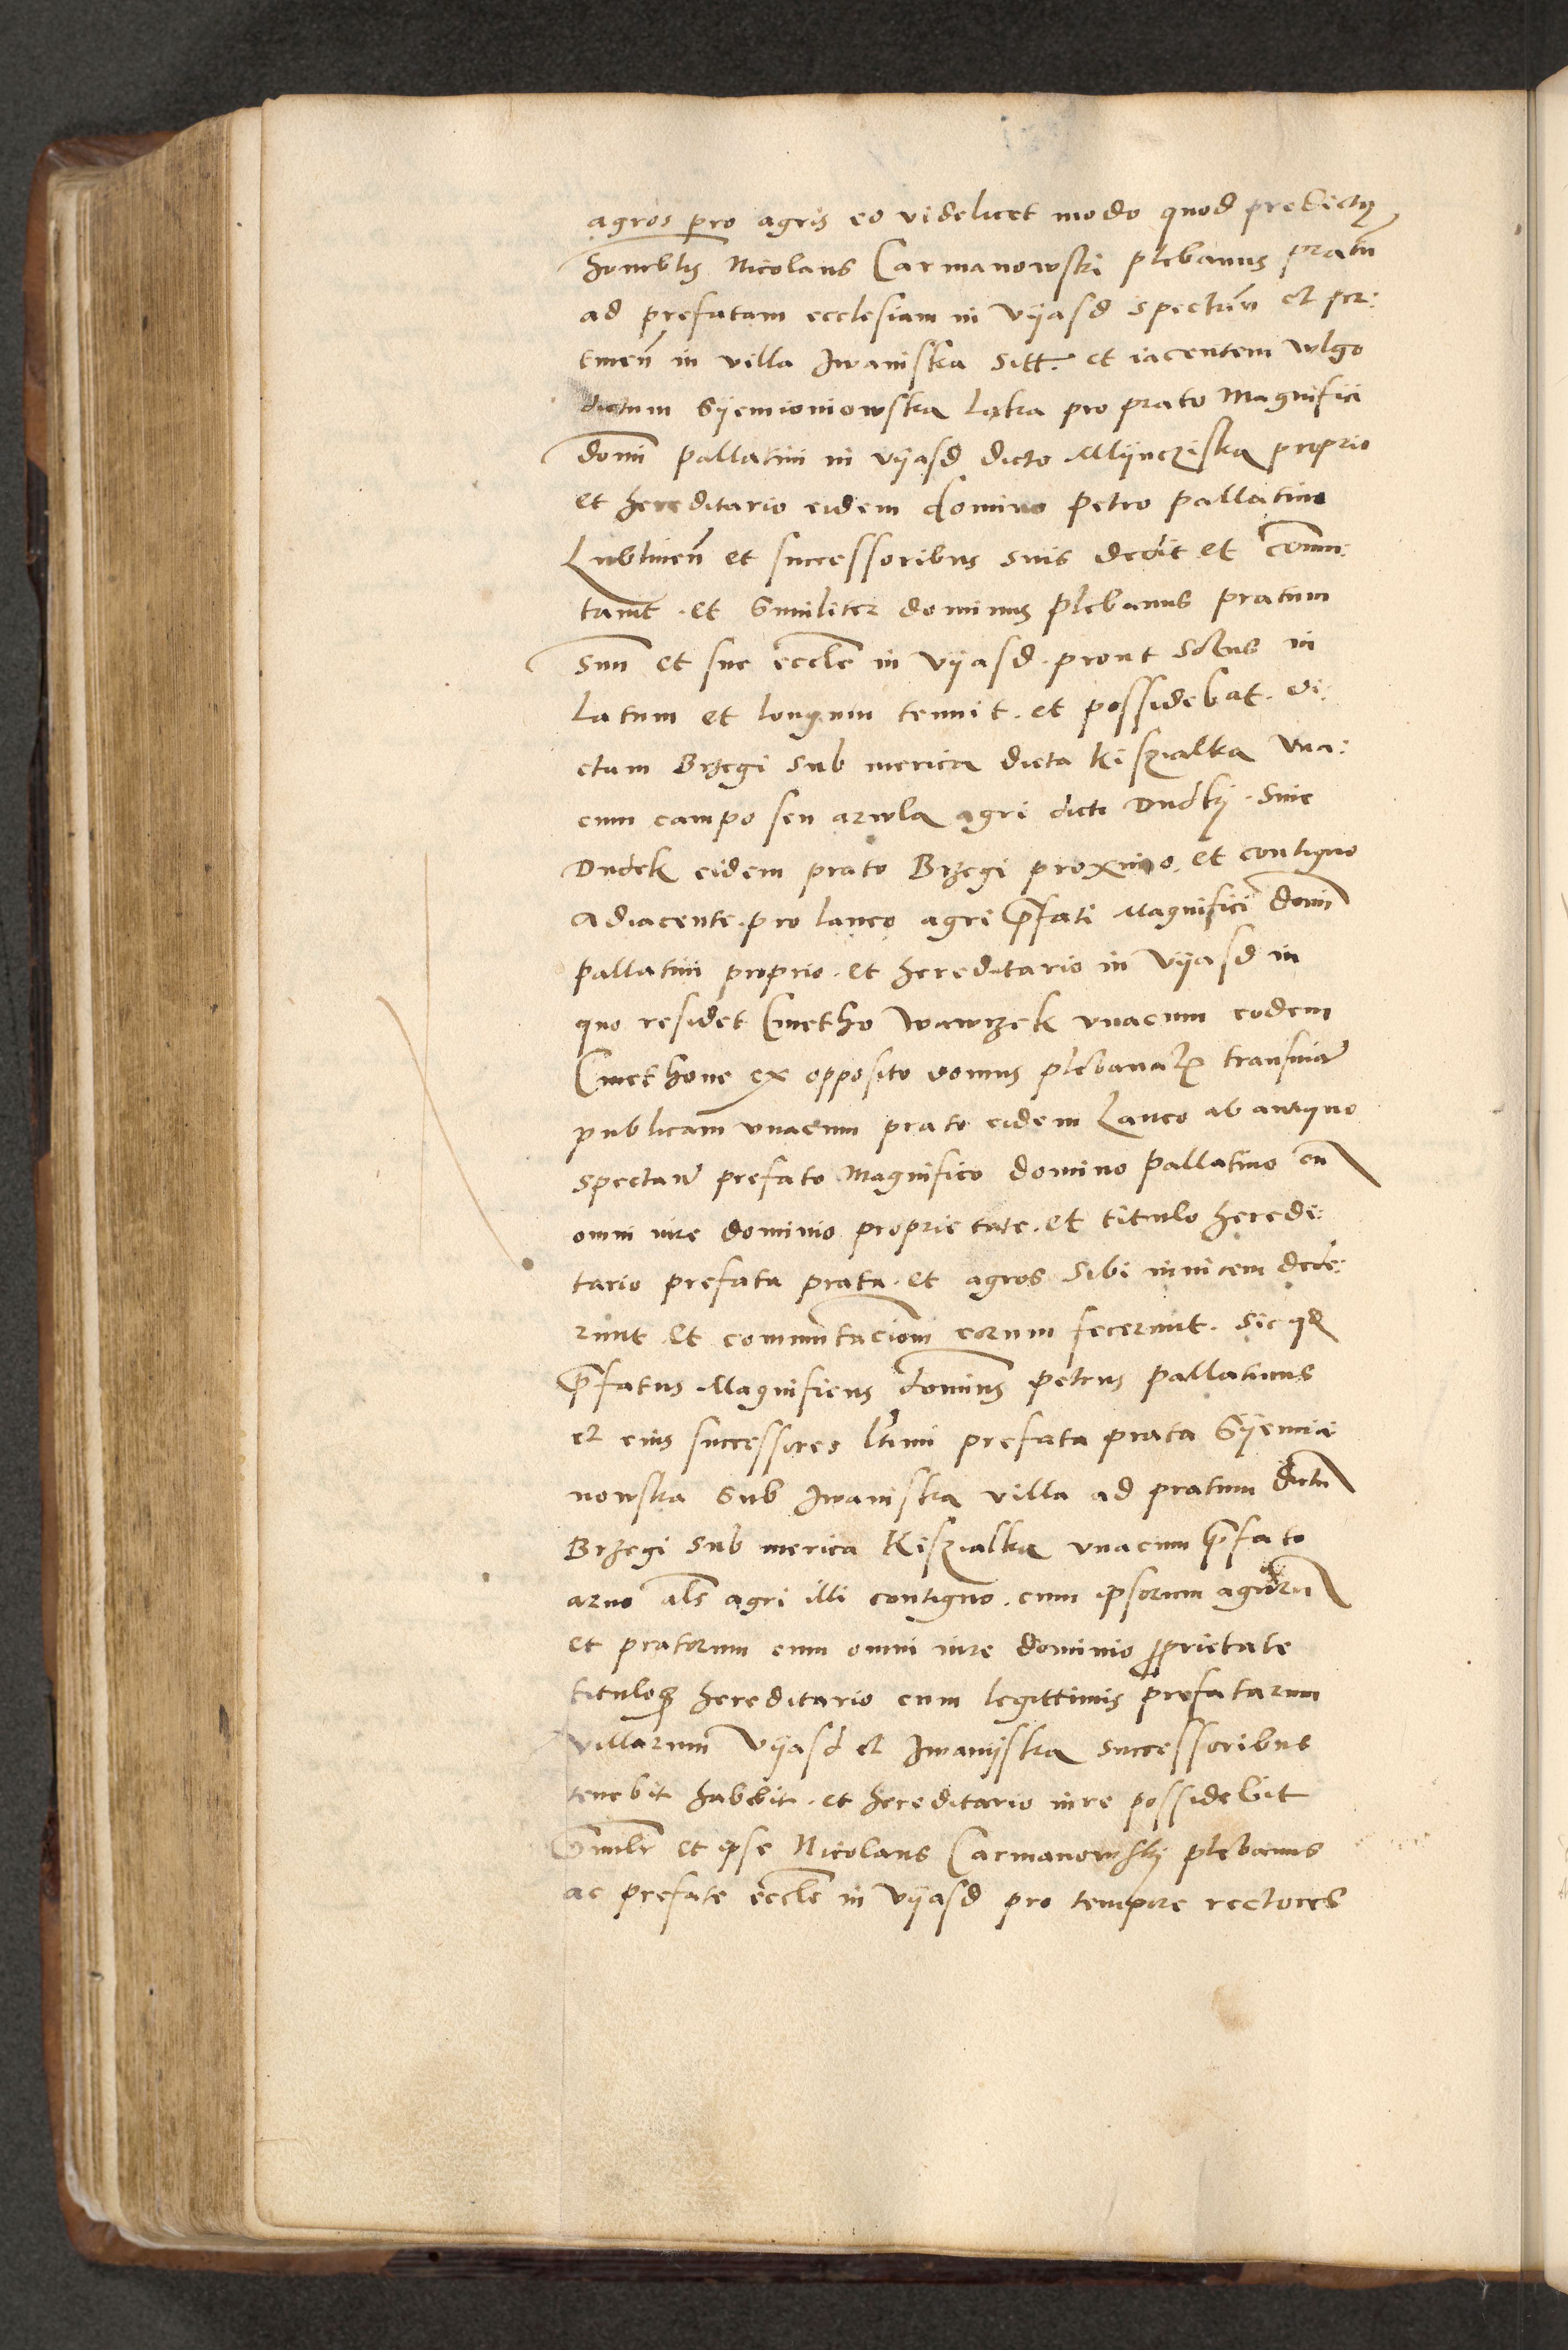 agros pro agris eo videlicet modo quod predictus
honorabilis Nicolaus Carmanowski plebanus pratum
ad prefatam ecclesiam in Vyasd spectan̄ et per:
tinen̄ in villa Iwaniska sitt. et iacentem wlgo
dictum Syemioniowska laka pro prato Magnifici
domī pallatini in vyasd dicto Mlynczyska proprio
et hereditario eidem domino petro pallatino
Lublinen̄ et successoribus suis dedit et commu:
tauit. et similiter dominus plebanus pratum
suū et sue eccl̄e in Vyasd. prout solus in
latum et longum tenuit. et possidebat. di:
ctum Brzegi sub merica dicta Kiszialka vna:
cum campo seu arwla agri dicti Dudky. siue
Dudek eidem prato Brzegi proximo. et contiguo
adiacente. pro laneo agri p̄fati Magnifici domī
pallatini proprio. et hereditario in Vyasd in
quo residet Cmetho Wawrzek vnacum eodem
Cmethone ex opposito domus plebanalis transuiam
publicam vnacum prato eidem laneo ab antiquo
spectan̄ prefato Magnifico domino pallatino cū
omni iure dominio proprietate. et titulo heredi:
tario prefata prata. et agros sibi inuicem dede:
runt et commutacionem eorum fecerunt. Sic q̄
p̄fatus Magnificus domin̄s petrus pallatinus
et eius successores lt̄imi prefata prata Syemio
nowska sub Iwaniska villa ad pratum dictū
Brzegi sub merica Kiszialka vnacum p̄fato
aruo al̄s agri illi contiguo. cum ipsorum agrorū
et pratorum cum omni iure dominio proprietate
tituloq̄ hereditario cum legittimis prefatarum
villarum Vyasd et Iwanyska successoribus
tenebit habebit. et hereditario iure possidebit
Similr̄ et ipse Nicolaus Carmanowsky plebanus
ac prefate eccl̄e in Vyasd pro tempore rectores